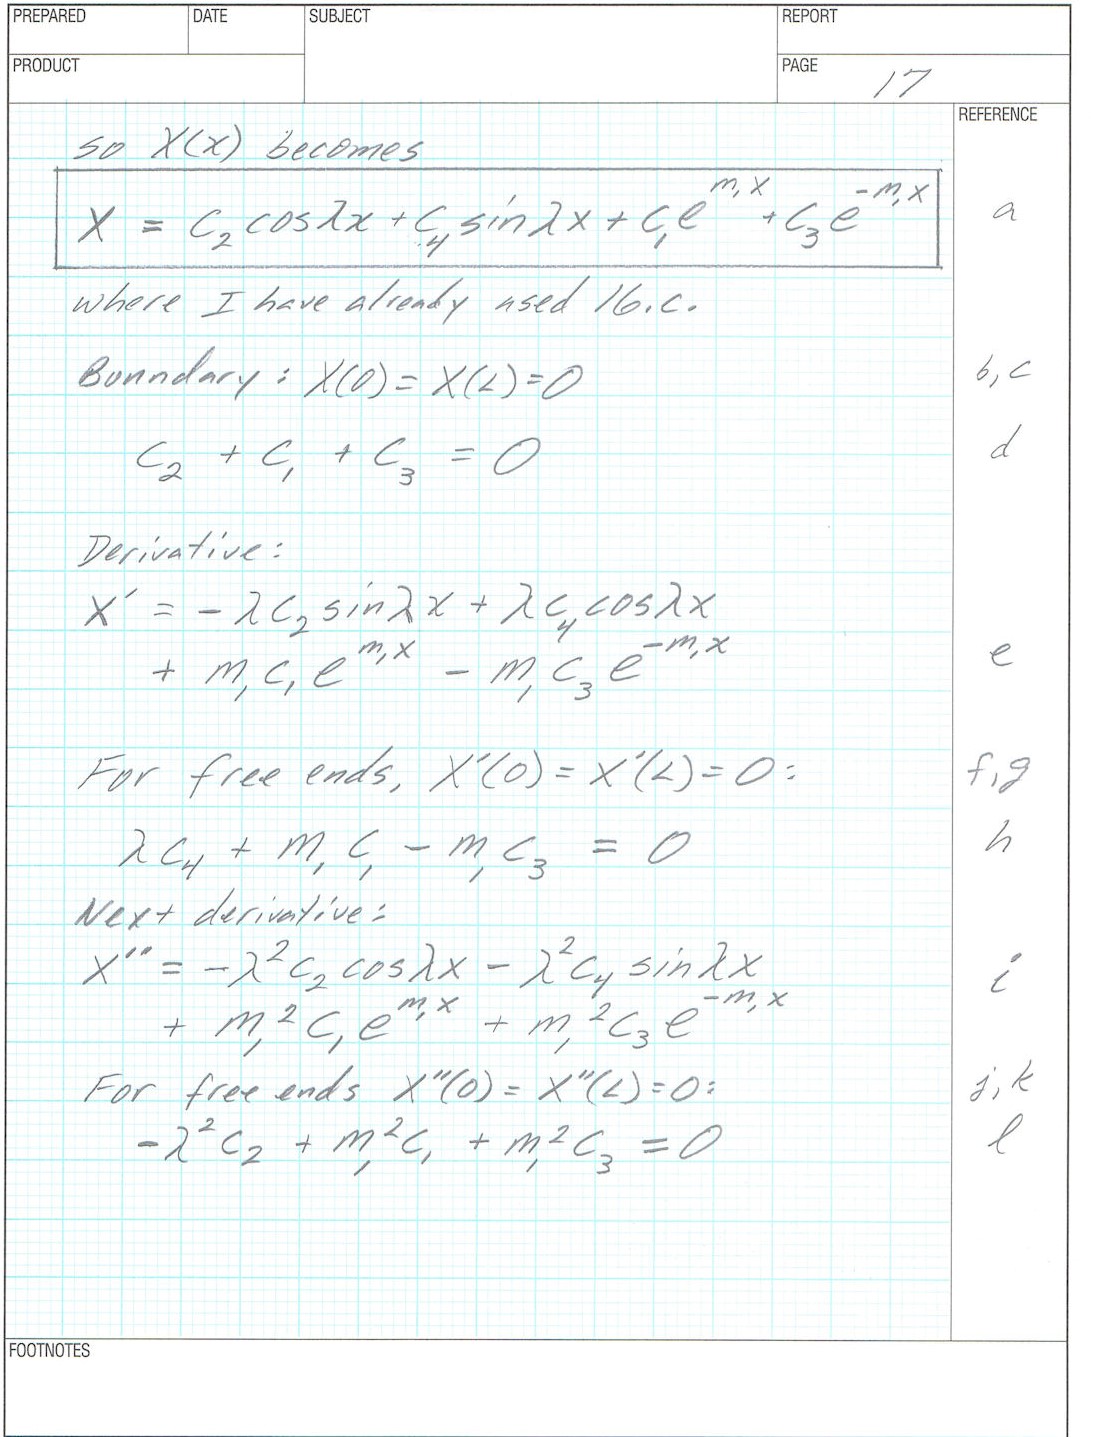 PREPARED DATE SUBJECT REPORT
PRODUCT PAGE 17
REFERENCE
so X(x) becomes
X = C₂ cosλx + C₄ sinλx + C₁e^{m₁x} + C₃e^{-m₁x} a
where I have already used 16.c.
Bounndary: X(0) = X(L) = 0 b, c
C₂ + C₁ + C₃ = 0 d
Derivative:
X′ = -λC₂ sinλx + λC₄ cosλx
+ m₁C₁e^{m₁x} - m₁C₃e^{-m₁x} e
For free ends, X′(0) = X′(L) = 0: f, g
λC₄ + m₁C₁ - m₁C₃ = 0 h
Next derivative:
X‴ = -λ²C₂ cosλx - λ²C₄ sinλx i
+ m₁²C₁e^{m₁x} + m₁²C₃e^{-m₁x}
For free ends X″(0) = X″(L) = 0: j, k
-λ²C₂ + m₁²C₁ + m₁²C₃ = 0 l
FOOTNOTES